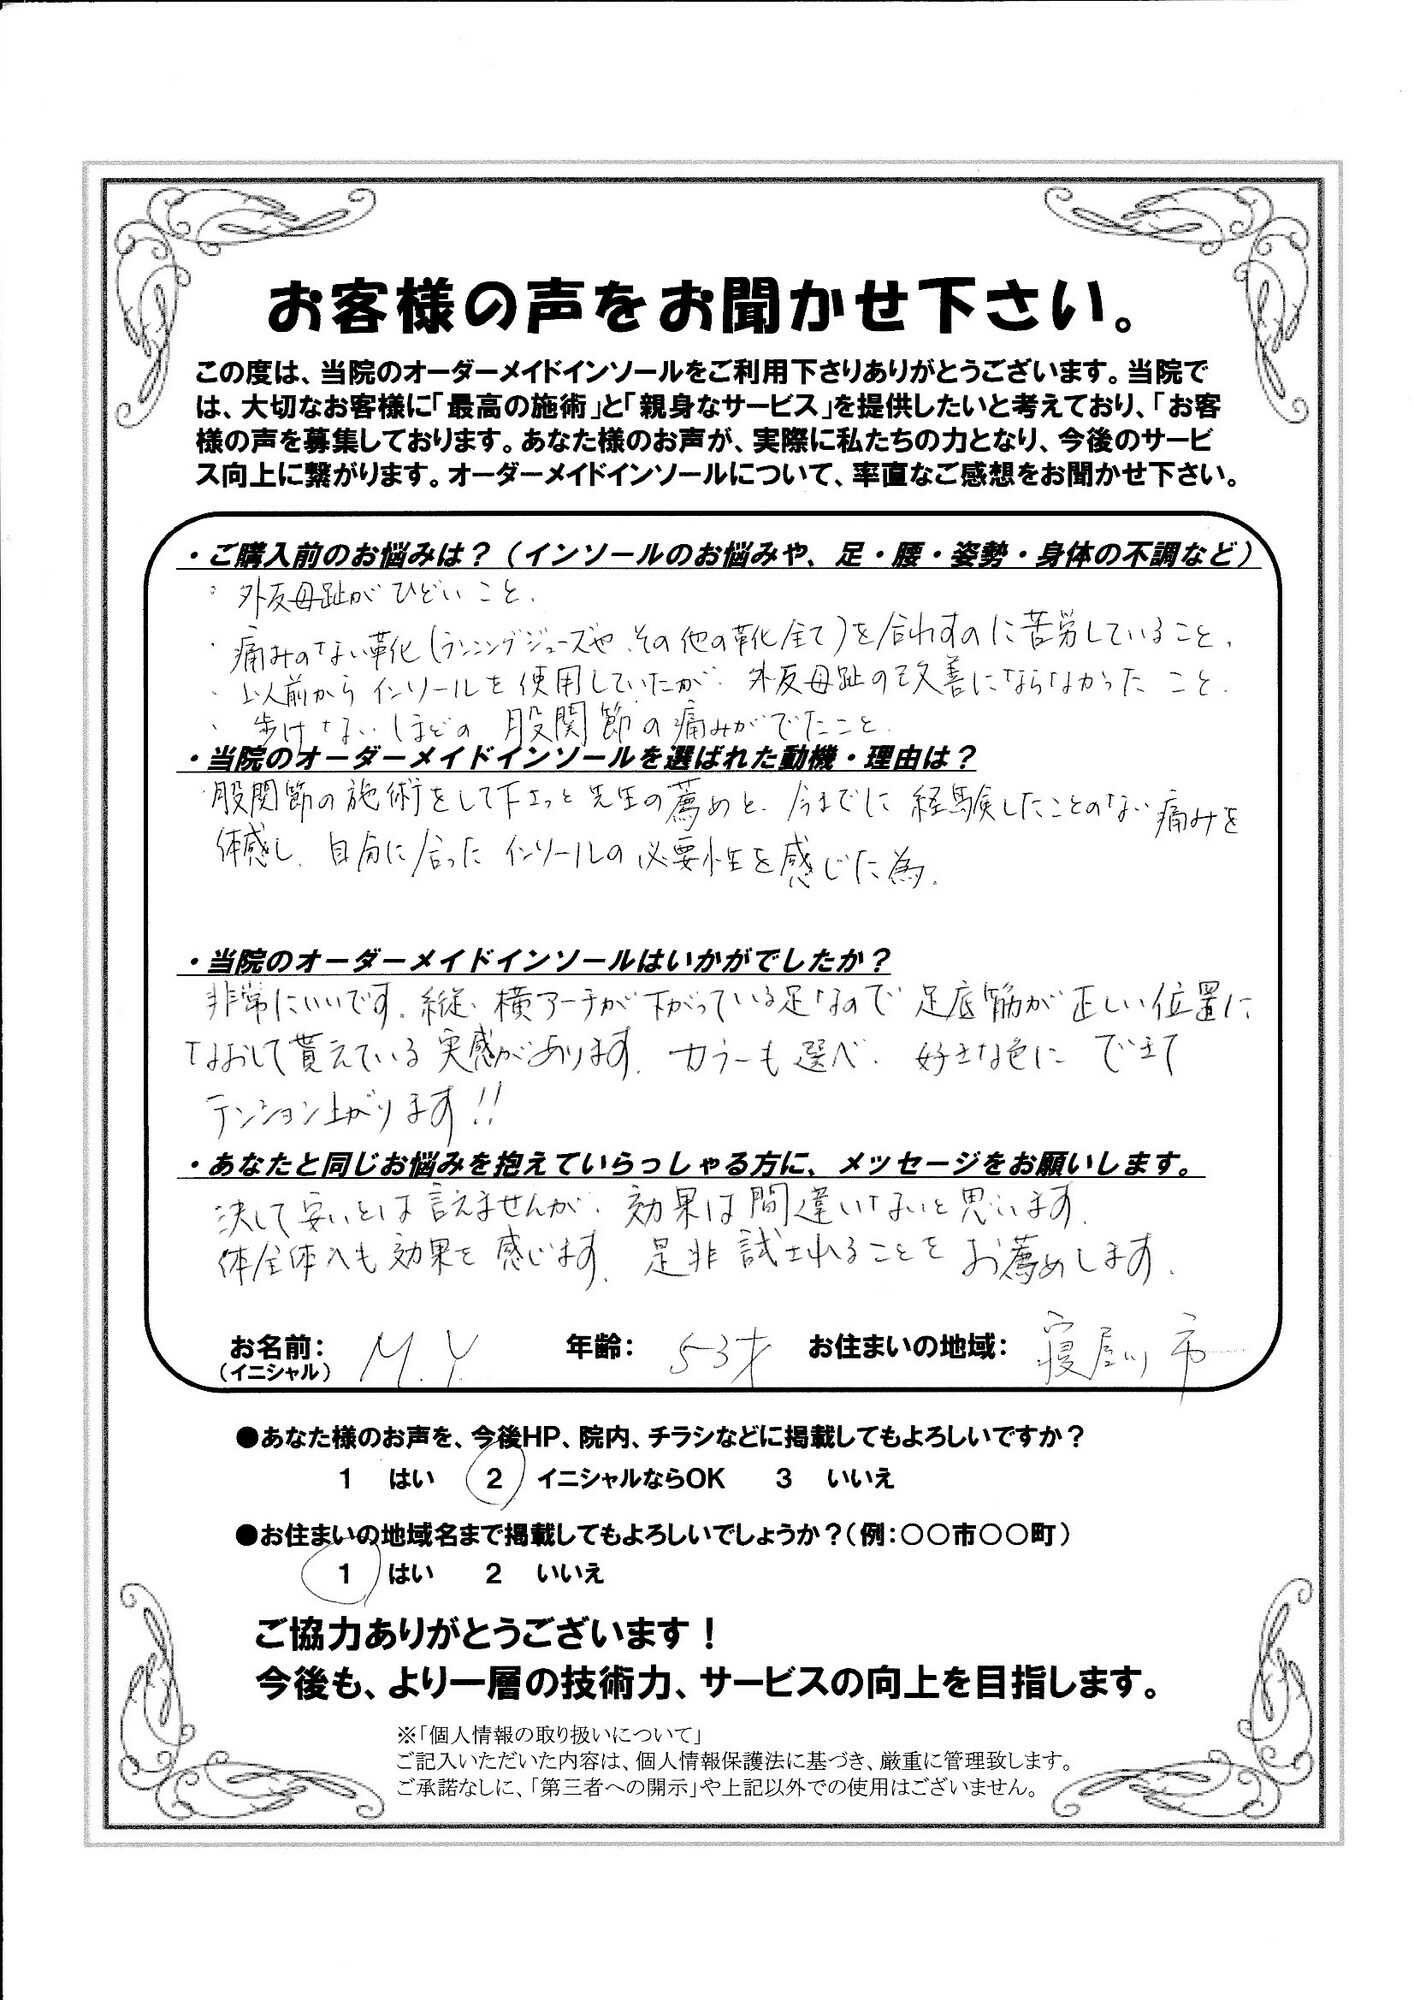 お客様の声をお聞かせ下さい。
この度は、当院のオーダーメイドインソールをご利用下さりありがとうございます。当院で
は、大切なお客様に「最高の施術」と「親身なサービス」を提供したいと考えており、「お客
様の声を募集しております。あなた様のお声が、実際に私たちの力となり、今後のサービ
ス向上に繋がります。オーダーメイドインソールについて、率直なご感想をお聞かせ下さい。
・ご購入前のお悩みは？（インソールのお悩みや、足・腰・姿勢・身体の不調など）
・外反母趾がひどいこと。
・痛みのない靴（ランニングシューズや、その他の靴全て）を合わすのに苦労していること。
・以前からインソールを使用していたが、外反母趾の改善にならなかったこと。
・歩けないほどの股関節の痛みがでたこと。
・当院のオーダーメイドインソールを選ばれた動機・理由は？
股関節の施術をして下さった先生の薦めと、今までに経験したことのない痛みを
体感し、自分に合ったインソールの必要性を感じた為。
・当院のオーダーメイドインソールはいかがでしたか？
非常にいいです。縦、横アーチが下がっている足なので足底筋が正しい位置に
なおして貰えている実感があります。カラーも選べ、好きな色にできて
テンション上がります!!
・あなたと同じお悩みを抱えていらっしゃる方に、メッセージをお願いします。
決して安いとは言えませんが、効果は間違いないと思います。
体全体へも効果を感じます。是非試されることをお薦めします。
お名前： M.Y. 年齢： 53才 お住まいの地域： 寝屋川市
（イニシャル）
●あなた様のお声を、今後HP、院内、チラシなどに掲載してもよろしいですか？
1 はい 2 イニシャルならOK 3 いいえ
●お住まいの地域名まで掲載してもよろしいでしょうか？（例：〇〇市〇〇町）
1 はい 2 いいえ
ご協力ありがとうございます！
今後も、より一層の技術力、サービスの向上を目指します。
※「個人情報の取り扱いについて」
ご記入いただいた内容は、個人情報保護法に基づき、厳重に管理致します。
ご承諾なしに、「第三者への開示」や上記以外での使用はございません。